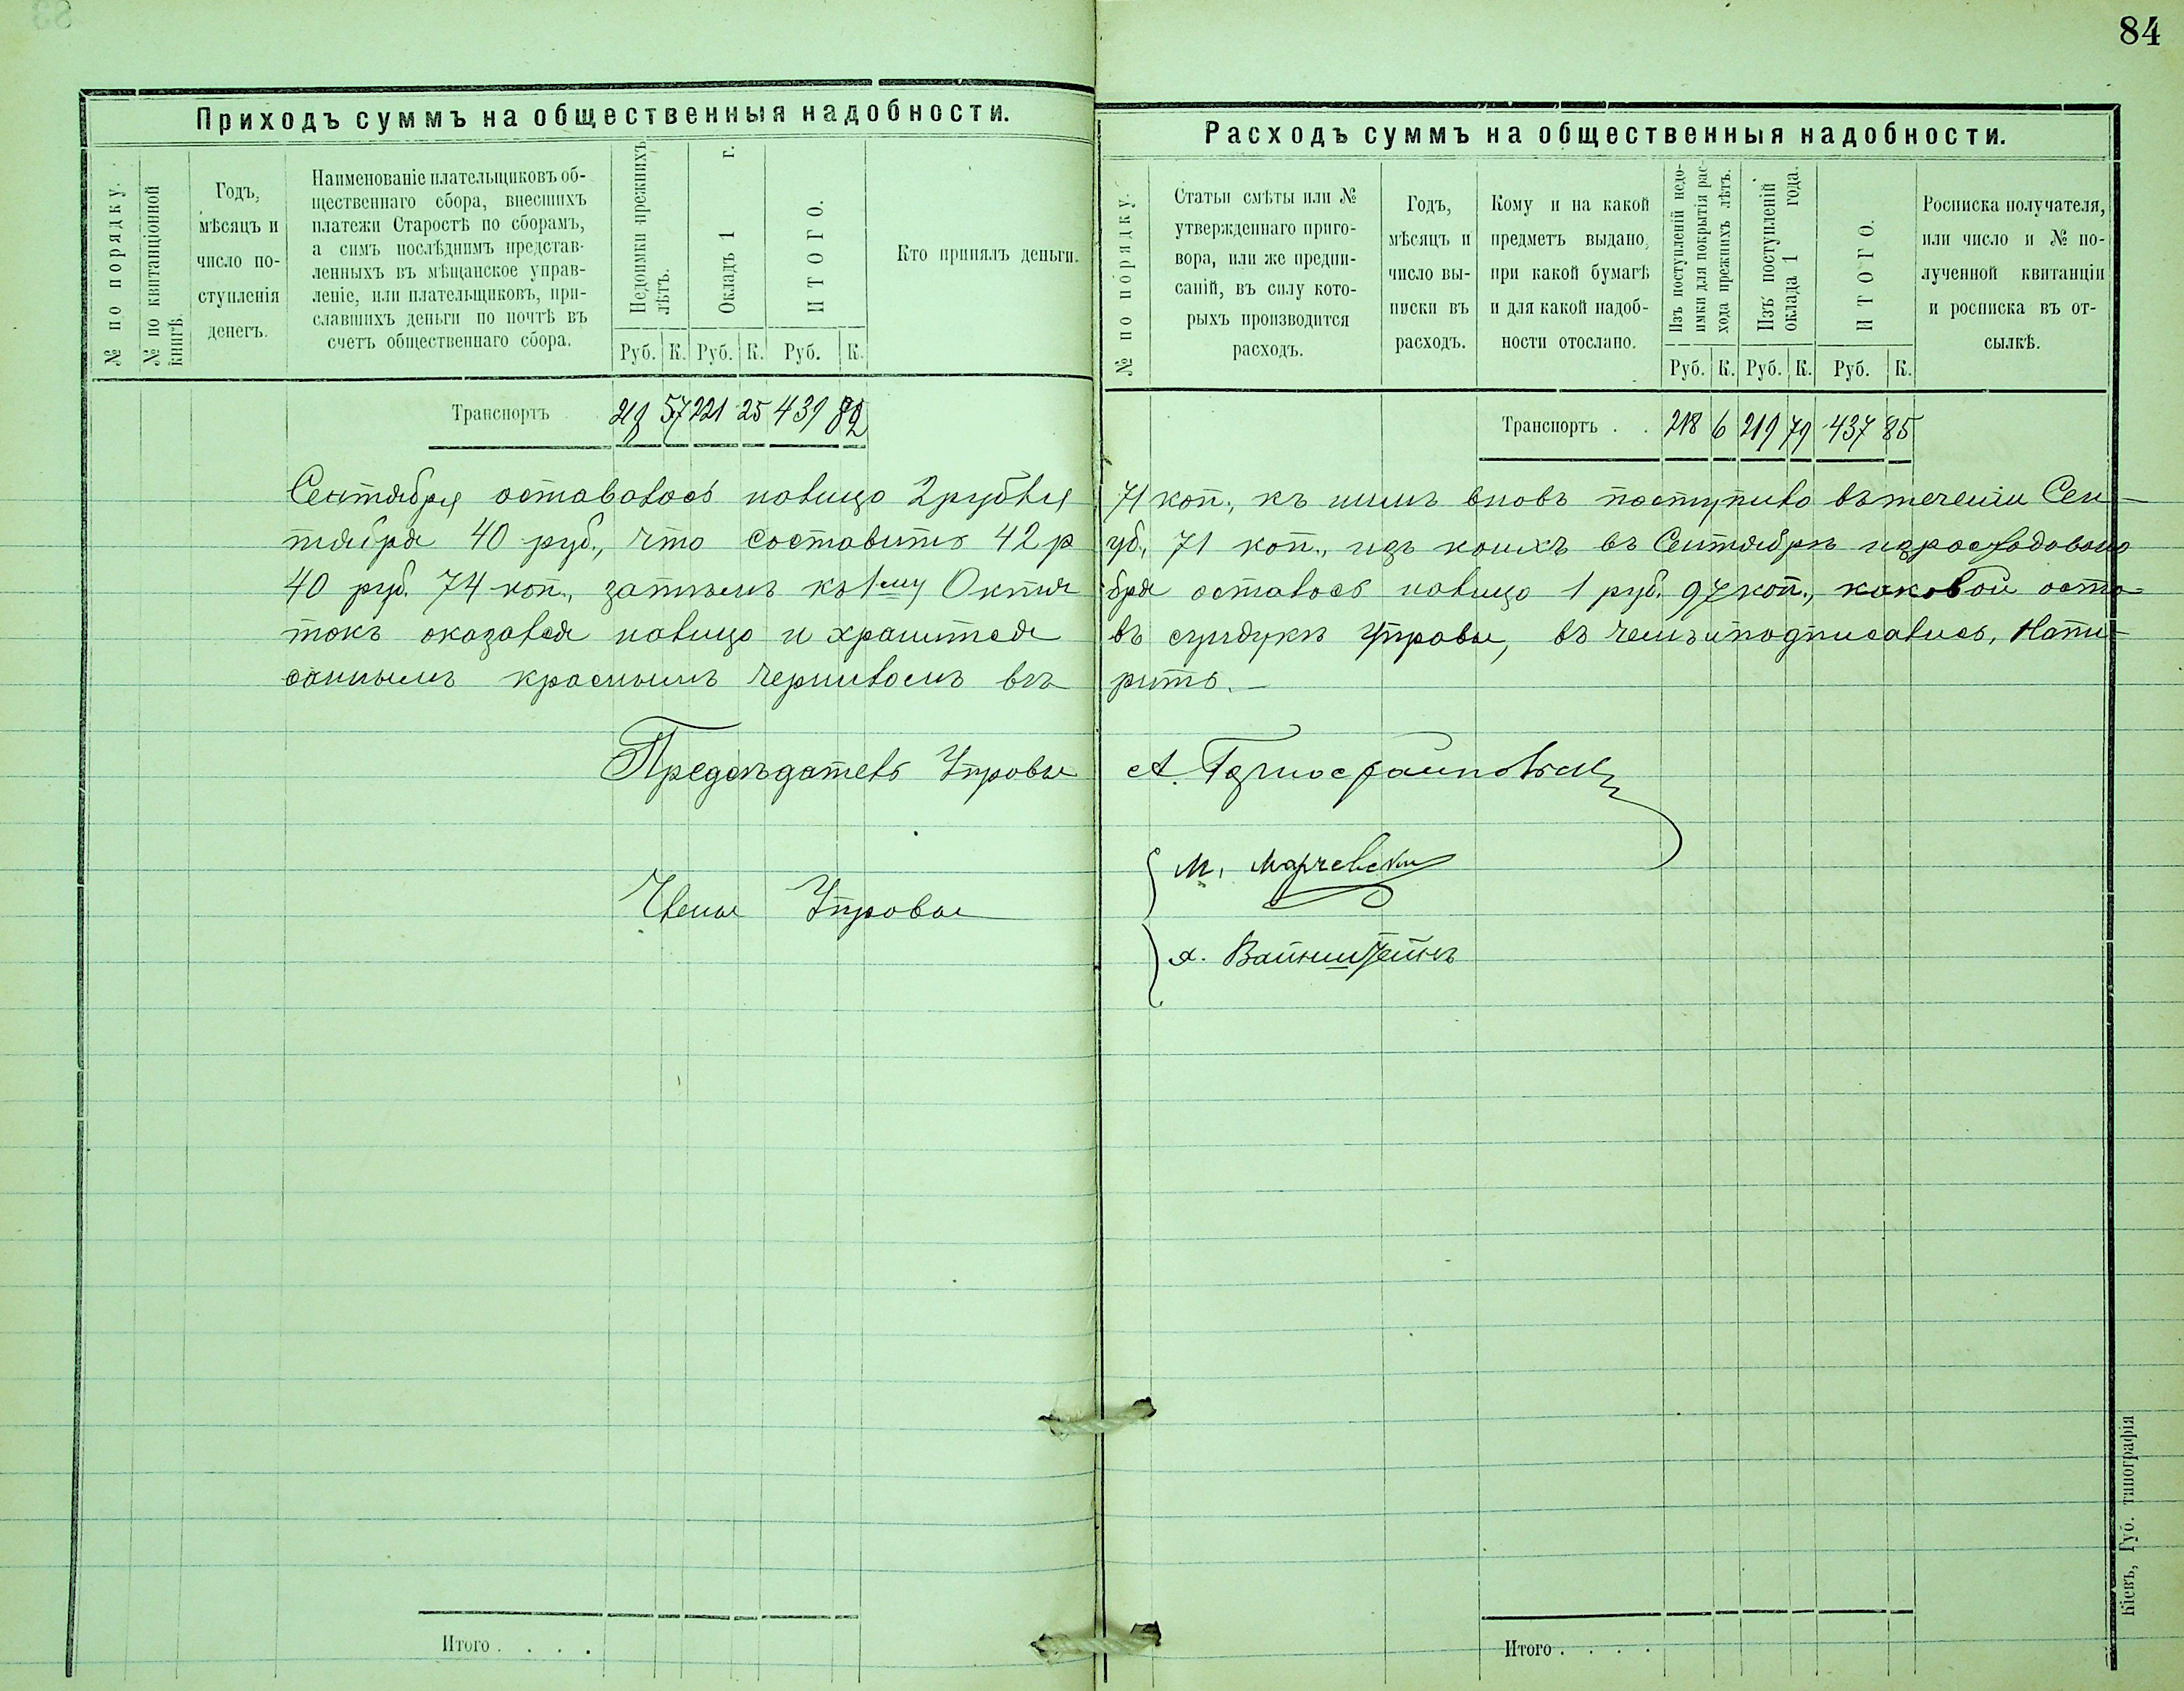 84
Приходъ суммъ на общественныя надобности.
№ по порядку.
№ по квитанціонной
книгѣ.
Годъ,
мѣсяцъ и
число по-
ступленія
денегъ.
Наименованіе плательщиковъ об-
щественнаго сбора, внесшихъ
платежи Старостѣ по сборамъ,
а симъ послѣднимъ представ-
ленныхъ въ мѣщанское управ-
леніе, или плательщиковъ, при-
славшихъ деньги по почтѣ въ
счетъ общественнаго сбора.
Недоимки прежнихъ
лѣтъ.
Окладъ 1 г.
ИТОГО.
Кто принялъ деньги.
Руб. К. Руб. К. Руб. К.
Транспортъ 218 57 221 25 439 82
Расходъ суммъ на общественныя надобности.
№ по порядку.
Статьи смѣты или №
утвержденнаго приго-
вора, или же предпи-
саній, въ силу кото-
рыхъ производится
расходъ.
Годъ,
мѣсяцъ и
число вы-
писки въ
расходъ.
Кому и на какой
предметъ выдано,
при какой бумагѣ
и для какой надоб-
ности отослано.
Изъ поступленій недо-
имки для покрытія рас-
хода прежнихъ лѣтъ.
Изъ поступленій
оклада 1 года.
ИТОГО.
Росписка получателя,
или число и № по-
лученной квитанціи
и росписка въ от-
сылкѣ.
Руб. К. Руб. К. Руб. К.
Транспортъ . . 218 6 219 79 437 85
Сентября оставалось налицо 2 рубля 71 коп., къ нимъ вновь поступило въ теченіи Сен-
тября 40 руб., что составитъ 42 руб., 71 коп., изъ коихъ въ Сентябрѣ израсходовано
40 руб. 74 коп., затѣмъ къ 1му Октября осталось налицо 1 руб. 97 коп., каковой оста-
токъ оказался налицо и хранится въ сундукѣ Управы, въ чемъ и подписались, Напи-
саннымъ краснымъ чернилом въ рить.—
Предсѣдатель Управы А.
Члены Управы
М. Марчевскій
Я. Вайнштейнъ
Итого . . . .
Итого . . . .
Кіевъ, Губ. типографія